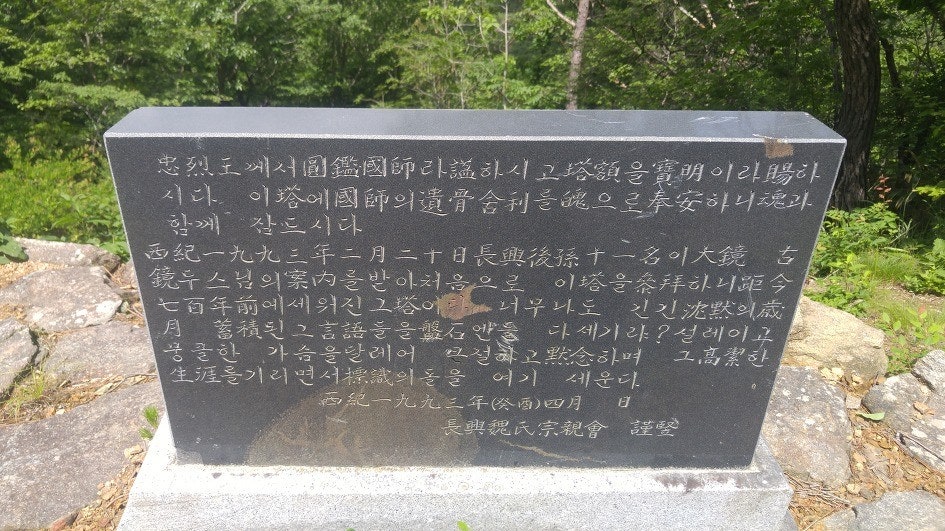 忠烈王께서圓鑑國師라諡하시고塔額을寶明이라賜하
시다. 이塔에國師의遺骨舍利를 으로奉安하니魂과
함께 잠드시다
西紀一九九三年二月二十日長興後孫十一名이大鏡 古
鏡두스님의案內를받아처음으로 이塔을參拜하니距今
七百年前에세워진그塔 너무나도 긴긴沈默의歲
月 蓄積된그言語들을盤石엔들 다세기랴?설레이고
뭉클한 가슴을달레어 큰절하고默念하며 그高潔한
生涯를기리면서標識의돌을 여기 세운다.
西紀一九九三年(癸酉)四月 日
長興魏氏宗親會 謹竪